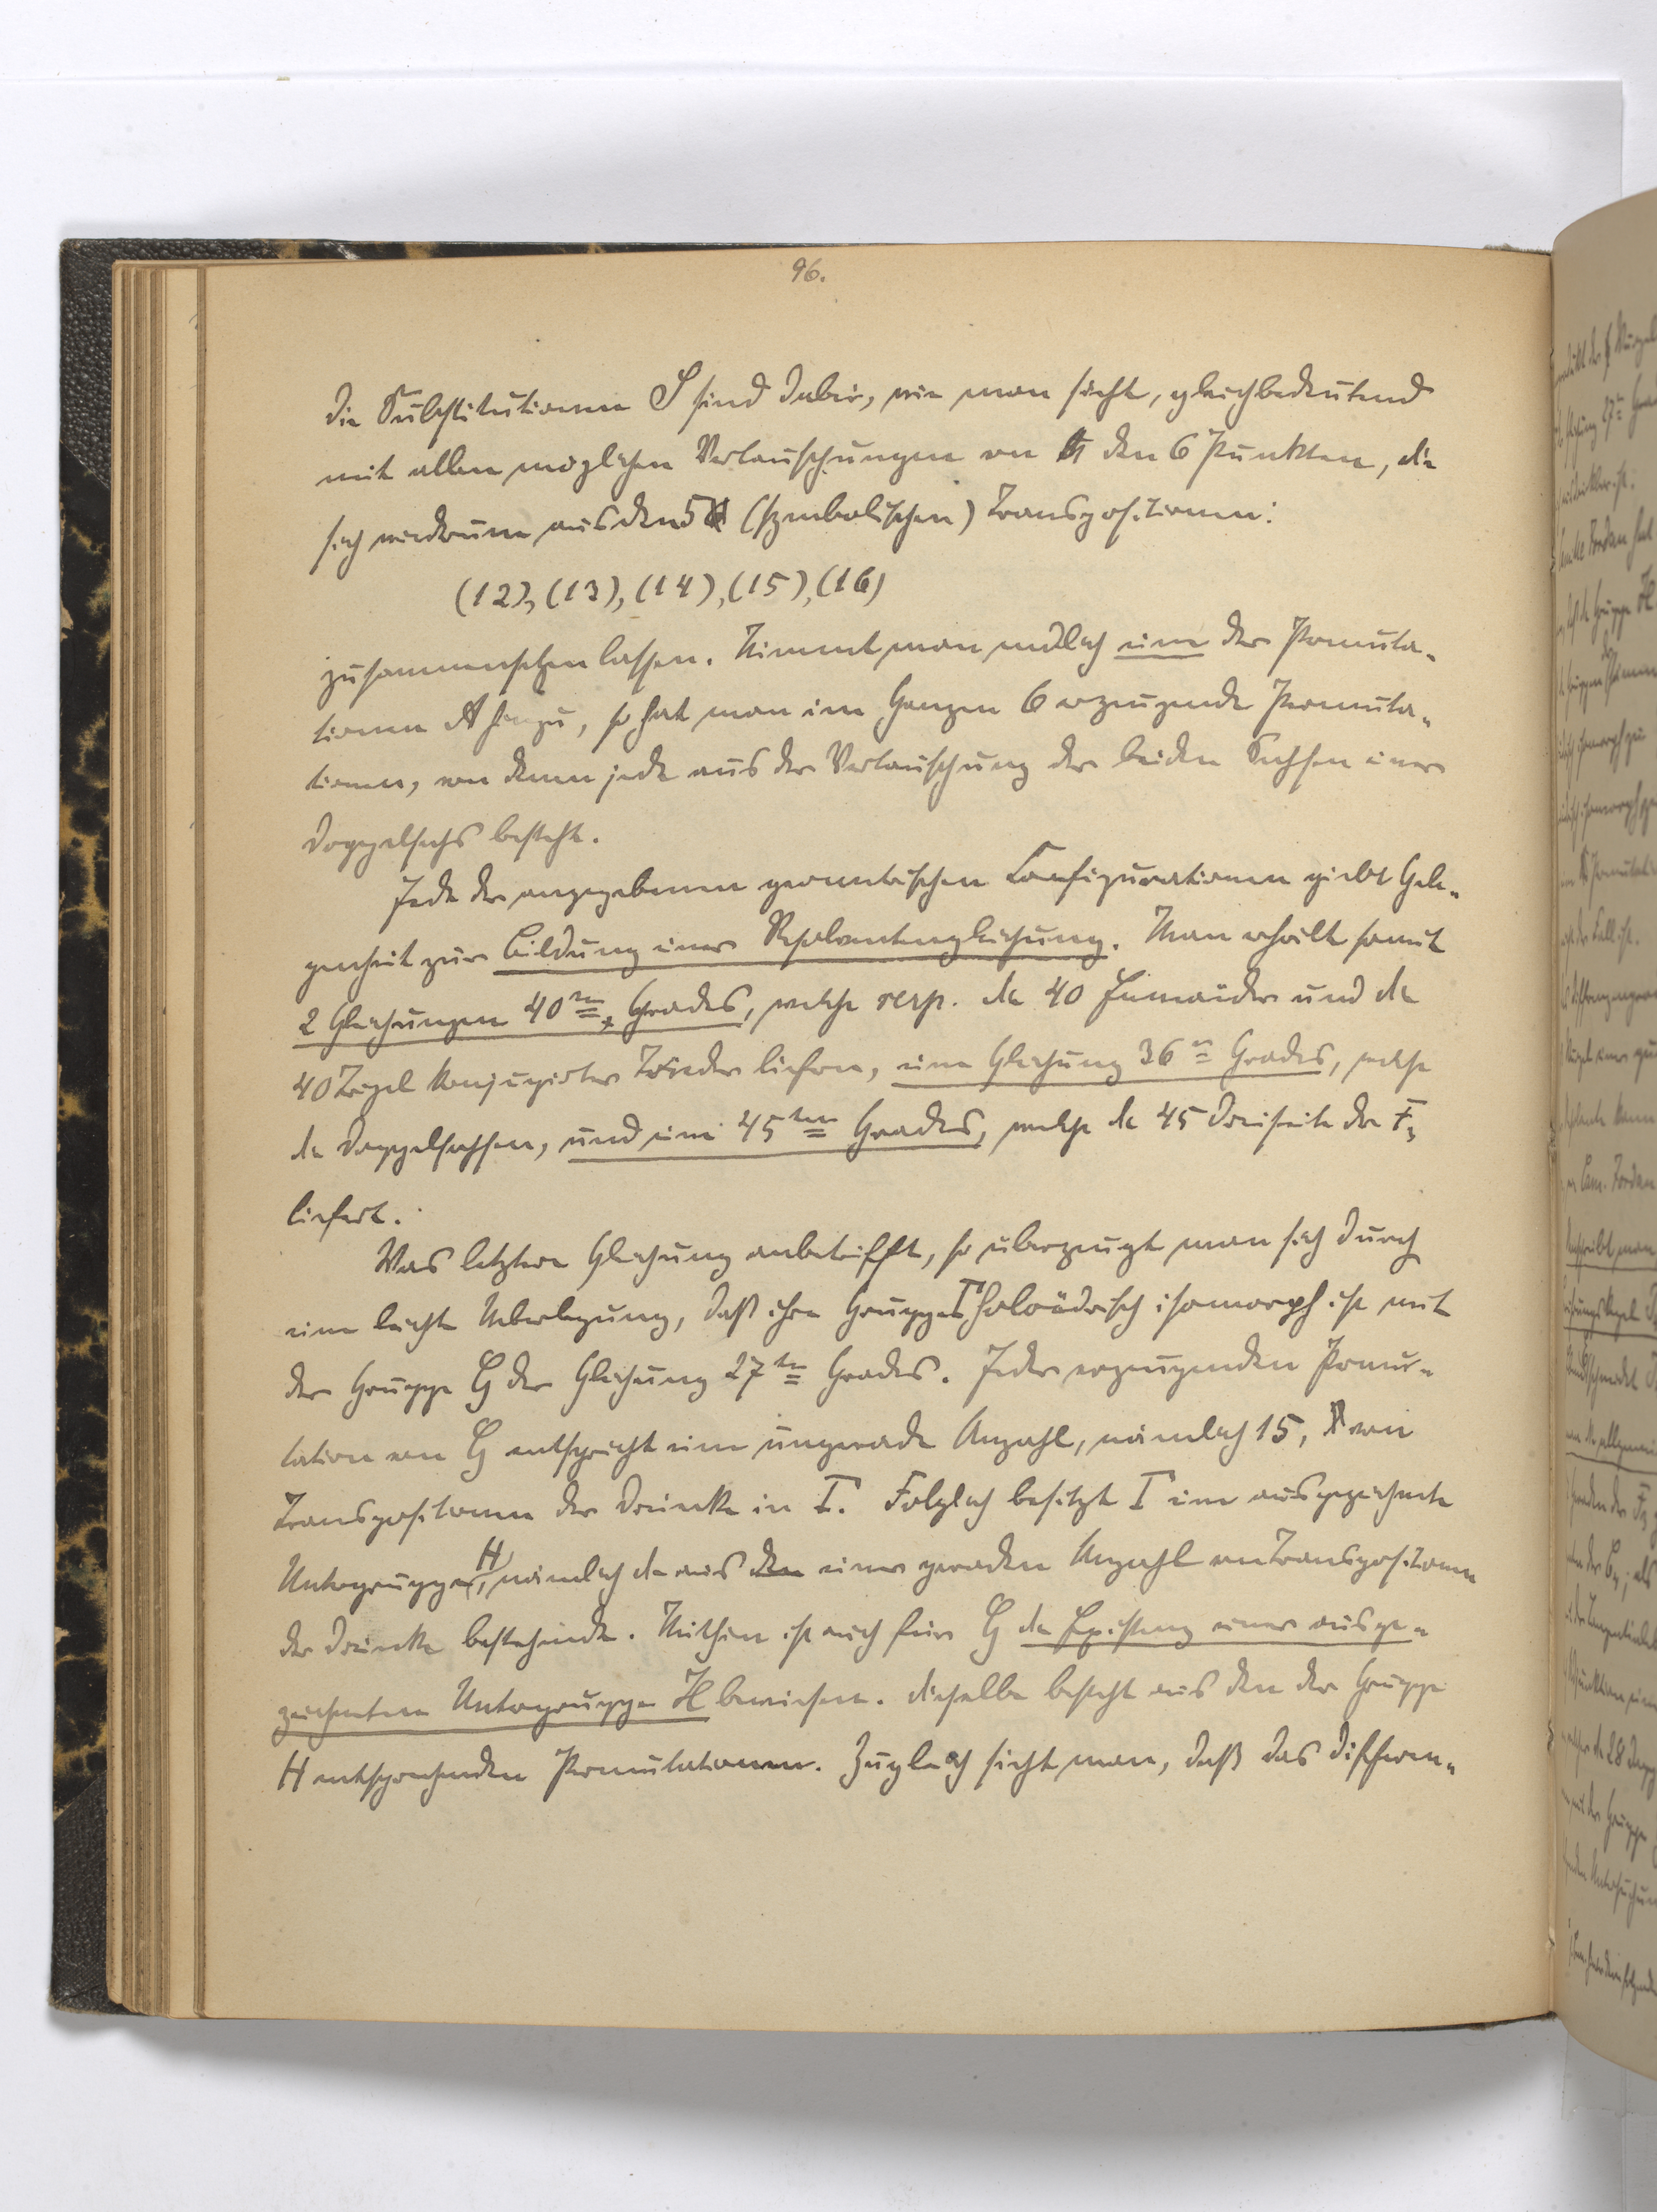 96.
Die Substitutionen S sind dabei, wie man sieht, gleichbedeutend
mit allen möglichen Vertauschungen von den 6 Punkten, die
sich wiederum aus den 5 (symbolischen) Transpositionen:
(12), (13), (14), (15), (16)
zusammensetzen lassen. Nimmt man endlich eine der Permuta-
tionen A hinzu, so hat man im Ganzen 6 erzeugende Permuta-
tionen, von denen jede aus der Vertauschung der beiden Sechsen einer
Doppelsechs besteht.
Jede der angegebenen geometrischen Configurationen giebt Gele-
genheit zur Bildung einer Resolventengleichung. Man erhält somit
2 Gleichungen 40ten Grades, welche resp. die 40 und die
40 Tripel konjugirter Trieder liefern, eine Gleichung 36ten Grades, welche
die Doppelsechsen, und eine 45ten Grades, welche die 45 Dreiseite der F3
liefert.
Was letztere Gleichung anbetrifft, so überzeugt man sich durch
eine leichte Ueberlegung, daß ihre Gruppe Γ holoëdrisch isomorph ist mit
der Gruppe G der Gleichung 27ten Grades. Jeder erzeugenden Permu-
tation von G entspricht eine ungerade Anzahl, nämlich 15, von
Transpositionen der Dreiecke in Γ. Folglich besitzt Γ eine ausgezeichnete
Untergruppe H, nämlich die aus den einer geraden Anzahl von Transpositionen
der Dreiecke bestehende. Mithin ist auch für G die Existenz einer ausge-
zeichneten Untergruppe H bewiesen. Dieselbe besteht aus den der Gruppe
H entsprechenden Permutationen. Zugleich sieht man, daß das Differen-